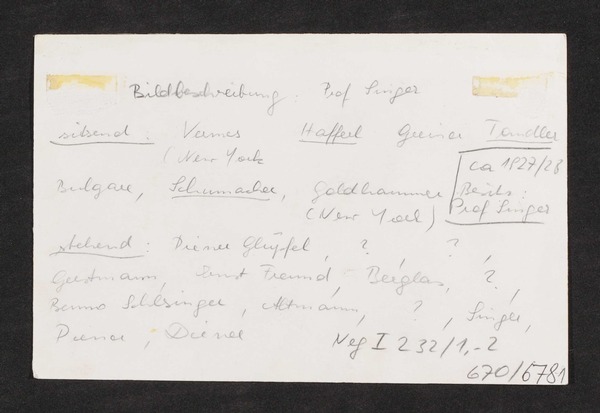 Bildbeschreibung : Prof Singer
sitzend : Vames Hafferl Greiner Tandler
(New York ca 1927/28
Bulgare, Schumacher, Goldhammer Besitz :
(New York) Prof Singer
stehend : Diener Glüpfel, ?, ?,
Gustmann, Ernst Freund, Berglas, ?,
Benno Schlesinger, Altmann, ?, Singer,
Diener, Diener
Neg I 232/1,-2
670/5781